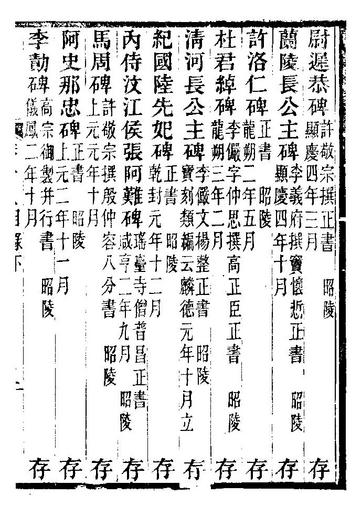 尉遲恭碑 許敬宗撰正書 昭陵 顯慶四年三月 存
蘭陵長公主碑 李義府撰竇懷悊正書 昭陵 顯慶四年十月 存
許洛仁碑 正書 昭陵 龍朔二年五月 存
杜君綽碑 李儼字仲思撰高正臣正書 昭陵 龍朔三年二月 存
清河長公主碑 李儼文楊整正書 昭陵 寶刻類編云麟德元年十月立 存
紀國陸先妃碑 正書 昭陵 乾封元年十二月 存
內侍汶江侯張阿難碑 瑤臺寺僧普昌正書 昭陵 咸亨二年九月 存
馬周碑 許敬宗撰殷仲容八分書 昭陵 上元元年十月 存
阿史那忠碑 正書 昭陵 上元二年十一月 存
李勣碑 高宗御製并行書 昭陵 儀鳳二年十月 存